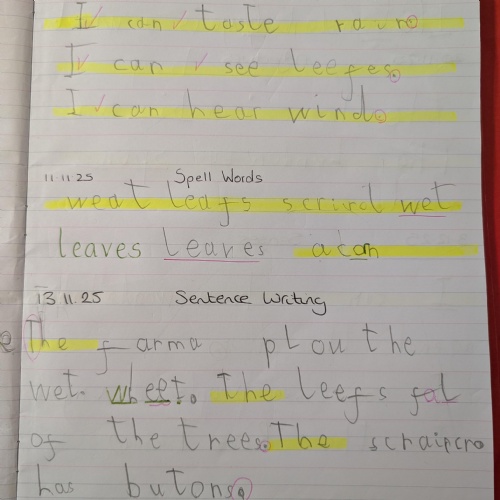 I can taste rain.
I can see leefes.
I can hear wind.
11.11.25 Spell Words
weat leafs scrird wet
leaves leaves acan
13.11.25 Sentence Writing
The farma plou the
wet. wheet. The leefs fal
of the trees. The scraipcro
has butons.